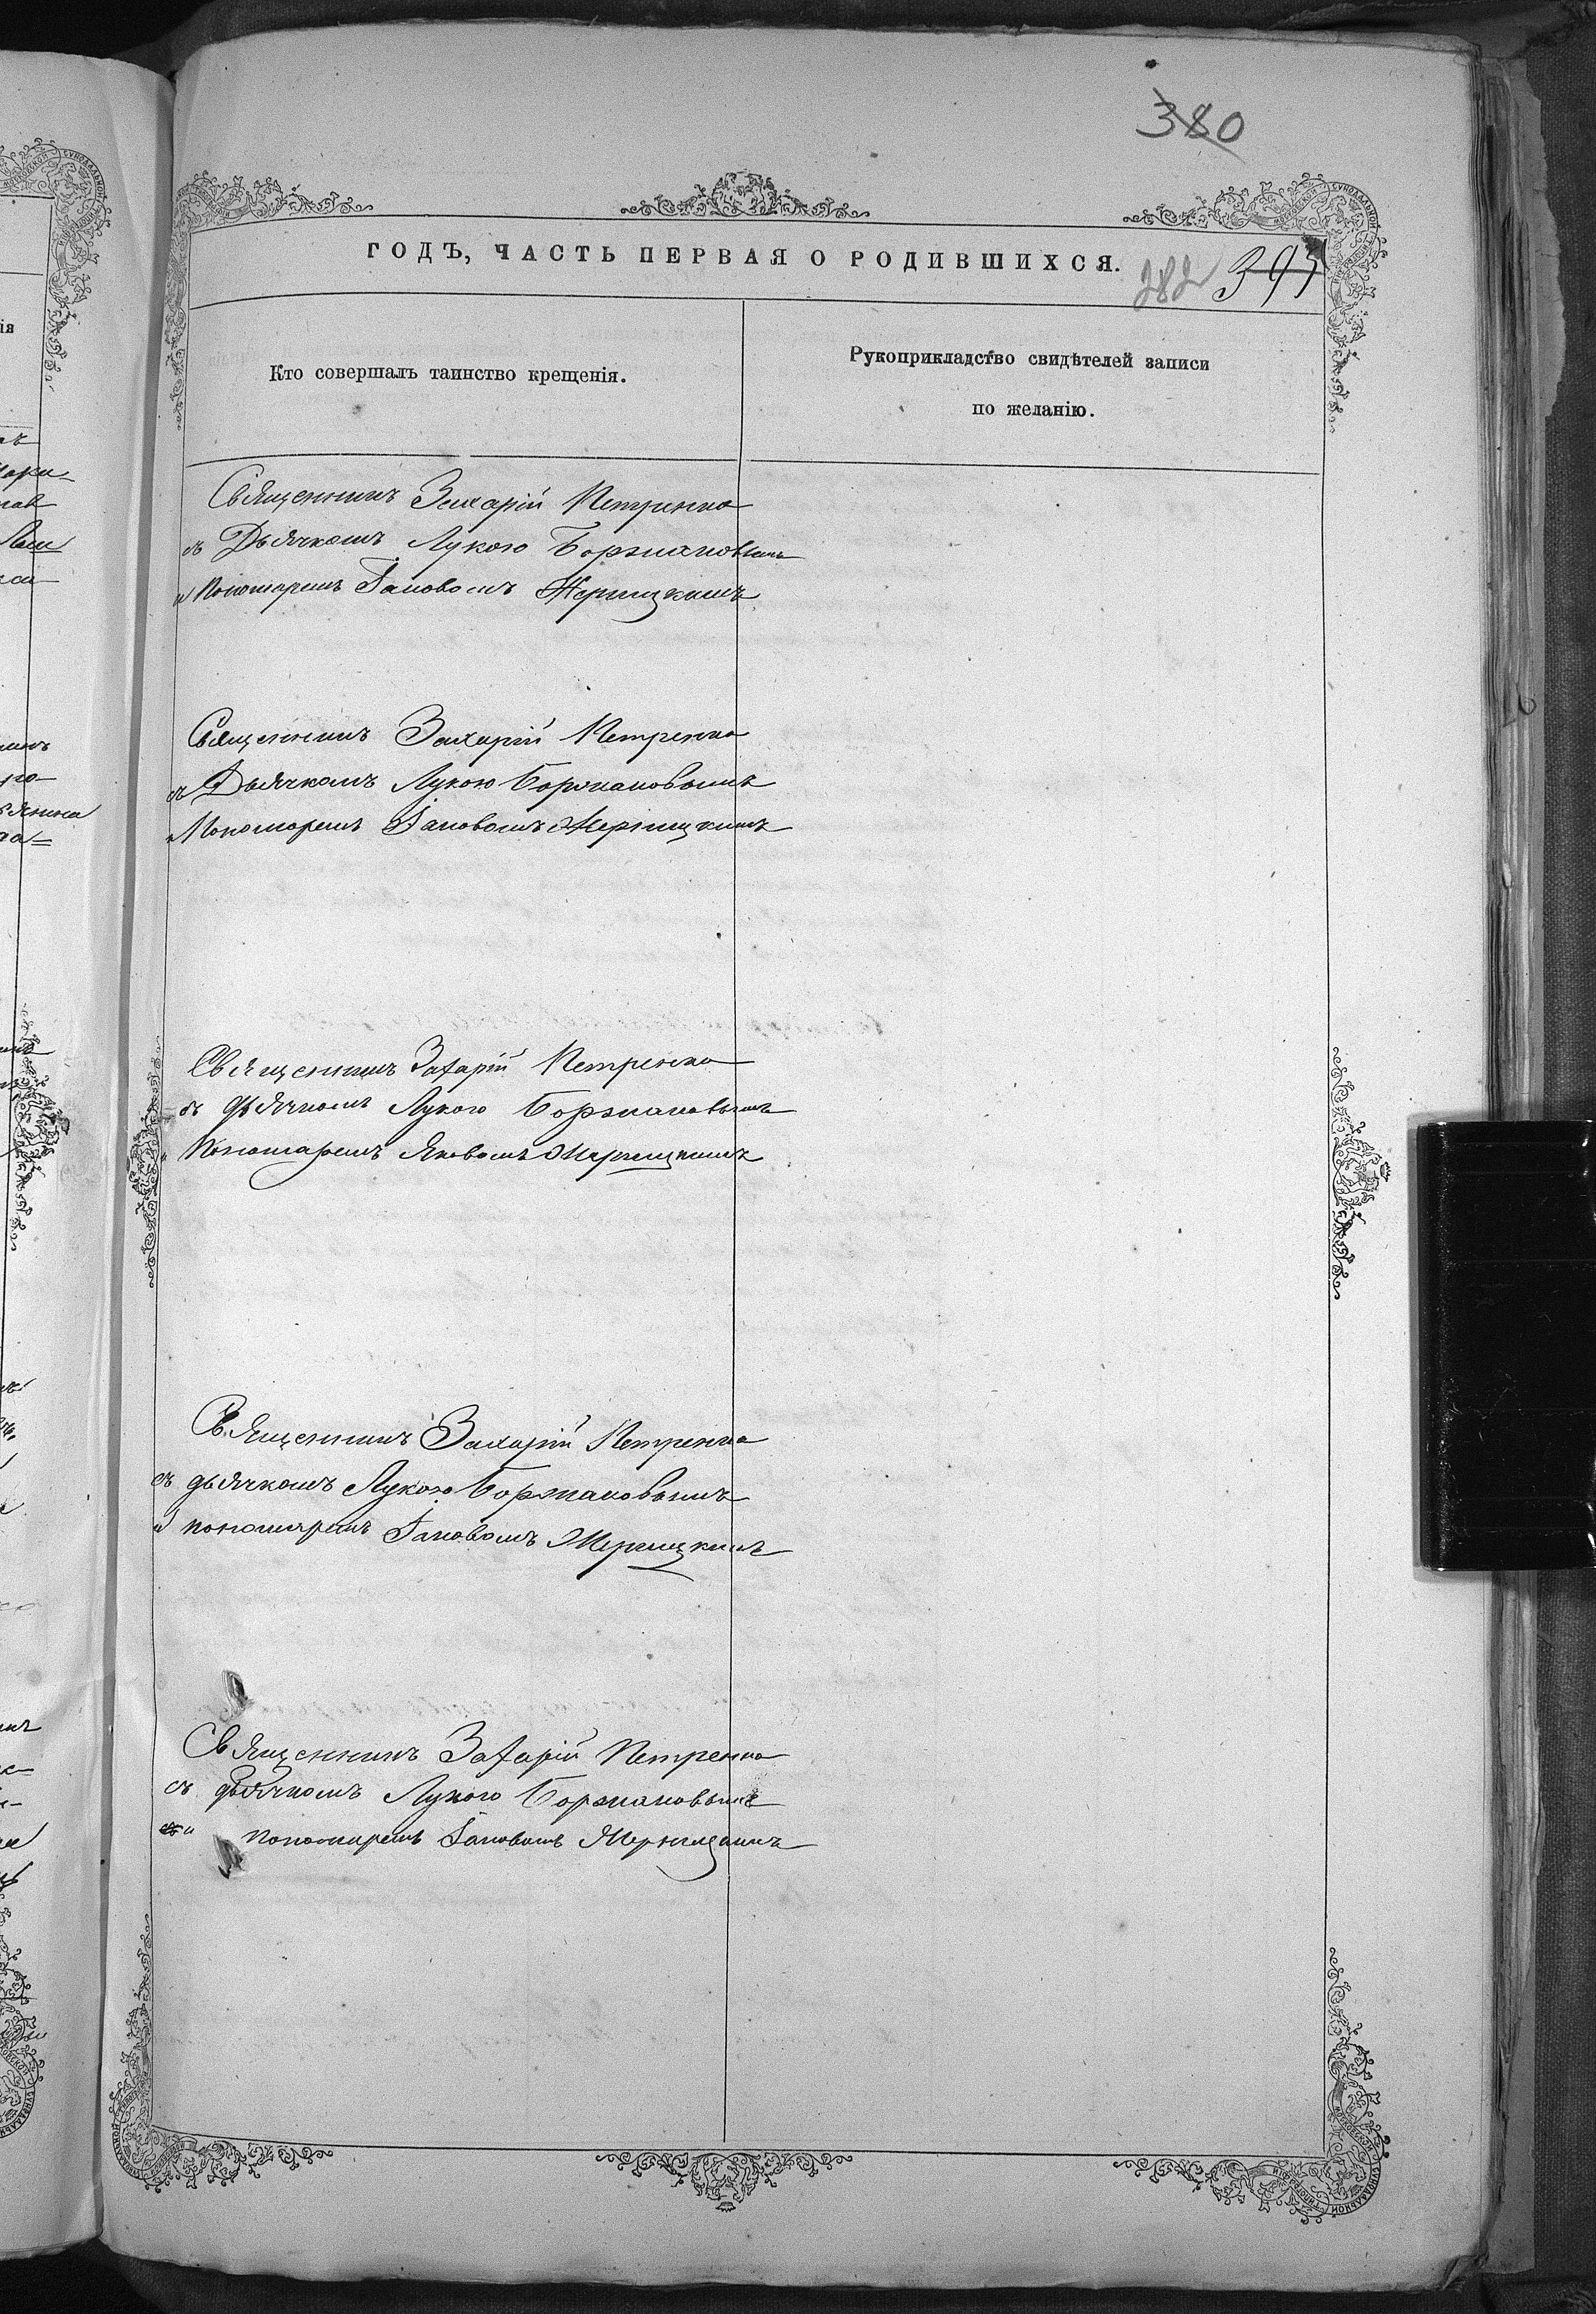 380
ГОДЪ, ЧАСТЬ ПЕРВАЯ О РОДИВШИХСЯ.
282 393
Кто совершалъ таинство крещенія.
Рукоприкладство свидѣтелей записи
по желанію.
Священникъ Захарій Петренко
съ Дьячкомъ Лукою Боржаковымъ
и Пономаремъ Іаковомъ
Священникъ Захарій Петренко
съ Дьячкомъ Лукою Боржаковымъ
и Пономаремъ Іаковомъ
Священникъ Захарій Петренко
съ дьячкомъ Лукою Боржаковымъ
и Пономаремъ Яковомъ
Священникъ Захарій Петренко
съ дьячкомъ Лукою Боржаковымъ
и пономаремъ Іаковомъ
Священникъ Захарій Петренко
съ дьячкомъ Лукою Боржаковымъ
и пономаремъ Іаковомъ